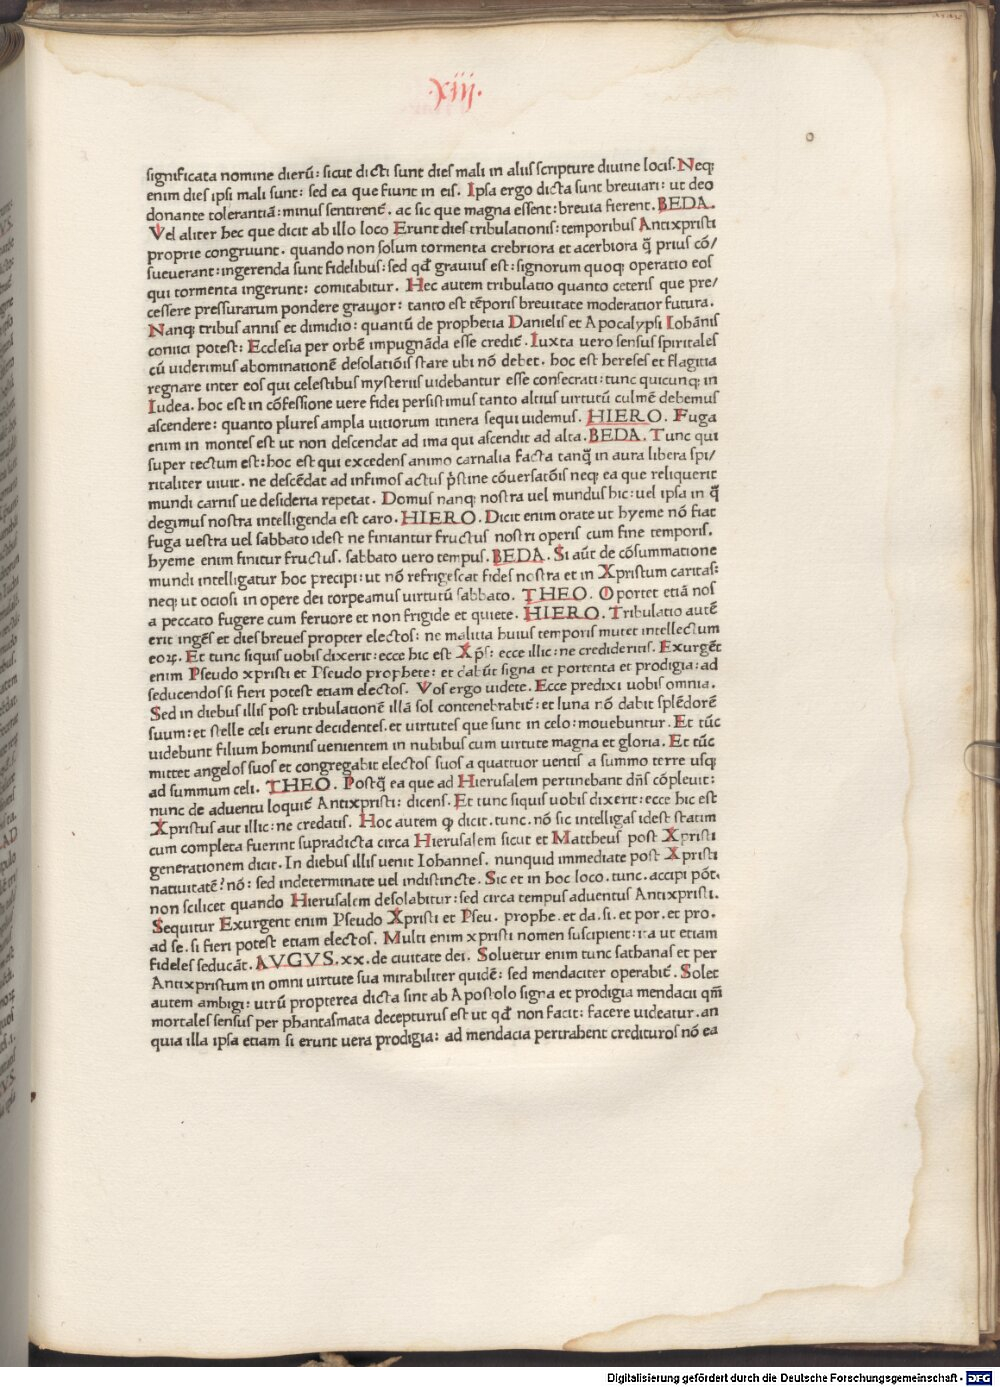 .xiij.
significata nomine dierū: sicut dicti sunt dies mali in aliis scripture diuine locis. Neq;
enim dies ipsi mali sunt: sed ea que fiunt in eis. Ipsa ergo dicta sunt breuiari: ut deo
donante tolerantiā: minus sentirent̄. ac sic que magna essent: breuia fierent. BEDA.
Vel aliter hec que dicit ab illo loco Erunt dies tribulationis: temporibus Antixpristi
proprie congruunt. quando non solum tormenta crebriora et acerbiora q̄ prius cō/
sueuerant: ingerenda sunt fidelibus: sed qđ grauius est: signorum quoq; operatio eos
qui tormenta ingerunt: comitabitur. Hec autem tribulatio quanto ceteris que pre/
cessere pressurarum pondere grauior: tanto est tēporis breuitate moderatior futura.
Nanq; tribus annis et dimidio: quantū de prophetia Danielis et Apocalypsi Iohānis
conici potest: Ecclesia per orbē impugnāda esse credit̄. Iuxta uero sensus spiritales
cū uiderimus abominationē desolatiōis stare ubi nō debet. hoc est hereses et flagitia
regnare inter eos qui celestibus mysteriis uidebantur esse consecrati: tunc quicunq; in
Iudea. hoc est in cōfessione uere fidei persistimus tanto altius uirtutū culmē debemus
ascendere: quanto plures ampla uitiorum itinera sequi uidemus. HIERO. Fuga
enim in montes est ut non descendat ad ima qui ascendit ad alta. BEDA. Tunc qui
super tectum est: hoc est qui excedens animo carnalia facta tanq̄ in aura libera spi/
ritaliter uiuit. ne descēdat ad infimos actus p̄stine cōuersatōis neq; ea que reliquerit
mundi carnis ue desideria repetat. Domus nanq; nostra uel mundus hic: uel ipsa in q̄
degimus nostra intelligenda est caro. HIERO. Dicit enim orate ut hyeme nō fiat
fuga uestra uel sabbato idest ne finiantur fructus nostri operis cum fine temporis.
hyeme enim finitur fructus. sabbato uero tempus. BEDA. Si aūt de cōsummatione
mundi intelligatur hoc precipi: ut nō refrigescat fides nostra et in Xpristum caritas:
neq; ut ociosi in opere dei torpeamus uirtutū sabbato. THEO. Oportet etiā nos
a peccato fugere cum feruore et non frigide et quiete. HIERO. Tribulatio autē
erit ingēs et dies breues propter electos: ne malitia huius temporis mutet intellectum
eoꝝ. Et tunc siquis uobis dixerit: ecce hic est Xp̄s: ecce illic: ne credideritis. Exurgēt
enim Pseudo xpristi et Pseudo prophete: et dabūt signa et portenta et prodigia: ad
seducendos si fieri potest etiam electos. Vos ergo uidete. Ecce predixi uobis omnia.
Sed in diebus illis post tribulationē illā sol contenebrabit̄: et luna nō dabit splēdorē
suum: et stelle celi erunt decidentes. et uirtutes que sunt in celo: mouebuntur. Et tūc
uidebunt filium hominis uenientem in nubibus cum uirtute magna et gloria. Et tūc
mittet angelos suos et congregabit electos suos a quattuor uentis a summo terre usq;
ad summum celi. THEO. Postq̄ ea que ad Hierusalem pertinebant dn̄s cōpleuit:
nunc de aduentu loquit̄ Antixpristi: dicens. Et tunc siquis uobis dixerit: ecce hic est
Xpristus aut illic: ne credatis. Hoc autem ꝙ dicit. tunc. nō sic intelligas idest statim
cum completa fuerint supradicta circa Hierusalem sicut et Mattheus post Xpristi
generationem dicit. In diebus illis uenit Iohannes. nunquid immediate post Xpristi
natiuitatē? nō: sed indeterminate uel indistincte. Sic et in hoc loco. tunc. accipi pōt.
non scilicet quando Hierusalem desolabitur: sed circa tempus aduentus Antixpristi.
Sequitur Exurgent enim Pseudo Xpristi et Pseu. prophe. et da. si. et por. et pro.
ad se. si fieri potest etiam electos. Multi enim xpristi nomen suscipient: ita ut etiam
fideles seducāt. AVGVS. xx. de ciuitate dei. Soluetur enim tunc sathanas et per
Antixpristum in omni uirtute sua mirabiliter quidē: sed mendaciter operabit̄. Solet
autem ambigi: utrū propterea dicta sint ab Apostolo signa et prodigia mendacii qm̄
mortales sensus per phantasmata decepturus est ut qđ non facit: facere uideatur. an
quia illa ipsa etiam si erunt uera prodigia: ad mendacia pertrahent credituros nō ea
Digitalisierung gefördert durch die Deutsche Forschungsgemeinschaft - DFG